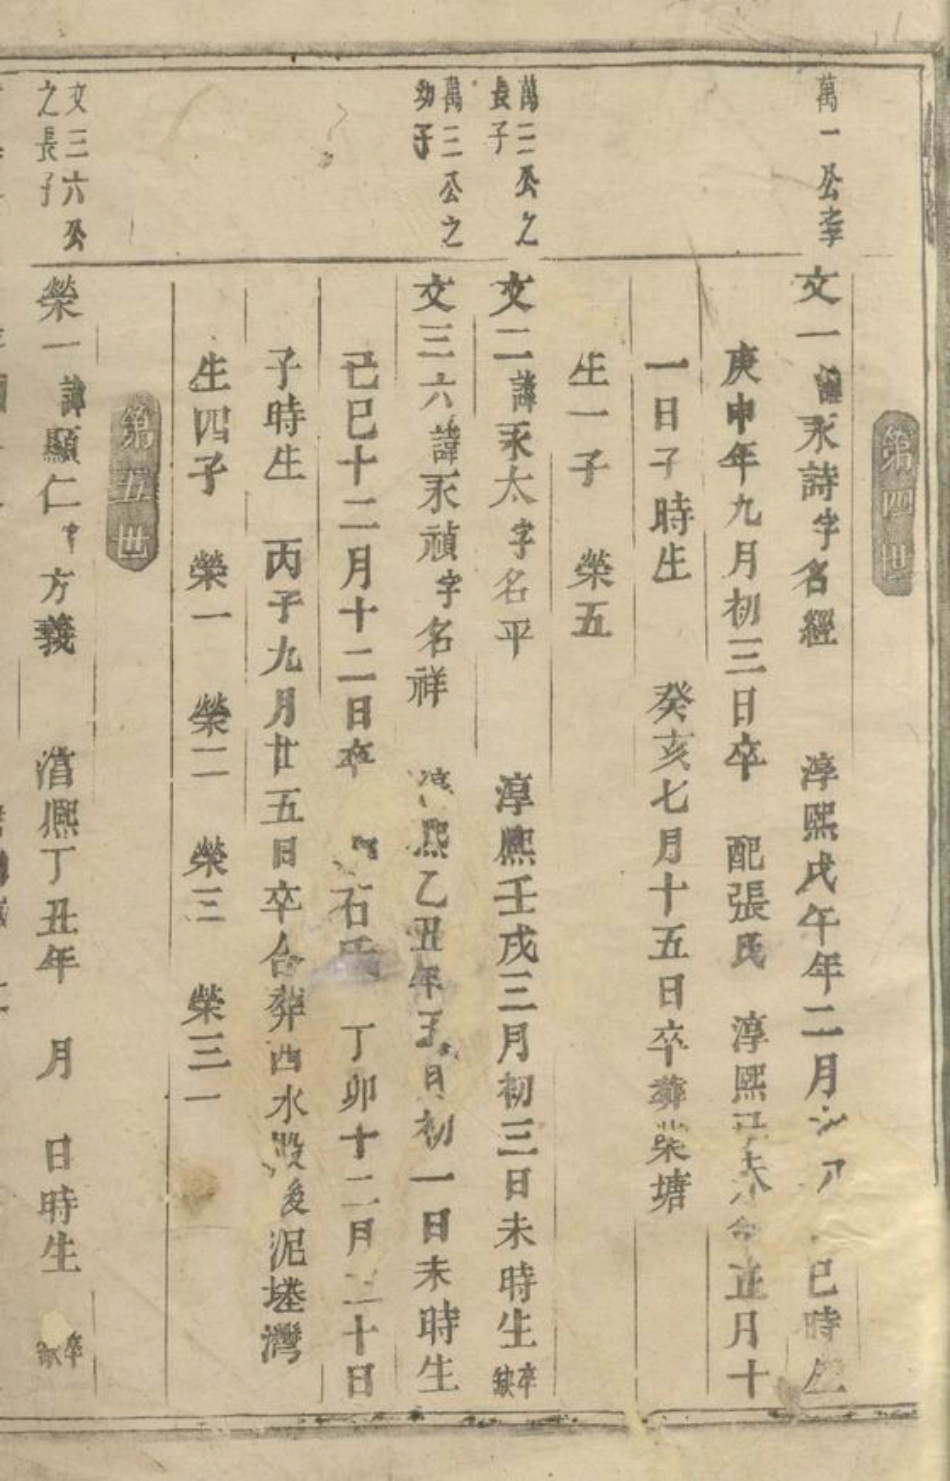 第四世
萬一公李
文一諱永詩字名經 淳熙戊午年二月初 巳時生
庚申年九月初三日卒 配張氏 淳熙 未年正月十
一日子時生 癸亥七月十五日卒葬柴塘
生一子 榮五
萬二公之
長子
文二諱永太字名平 淳熙壬戌三月初三日未時生卒缺
萬三公之
幼子
文三六諱永禎字名祥 熙乙丑年五月初一日未時生
己巳十二月十二日卒 石氏 丁卯十二月二十日
子時生 丙子九月廿五日卒合葬西水 後泥墶灣
生四子 榮一 榮二 榮三 榮三一
第五世
文三六公
之長子
榮一諱顯仁字方義 淯熈丁丑年 月 日時生 卒缺